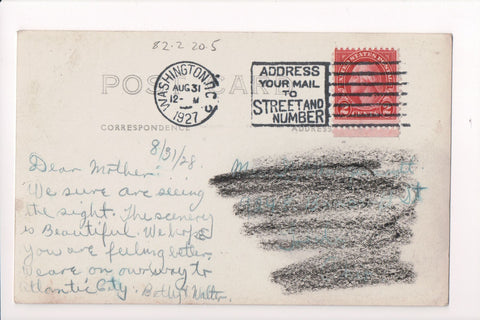 82-2 20.5
WASHINGTON, D.C.
AUG 31
12- M
1927
ADDRESS
YOUR MAIL
TO
STREET AND
NUMBER
POST CARD
CORRESPONDENCE
ADDRESS
8/31/28.
Dear Mother:
We sure are seeing
the sight. The scenery
is Beautiful. We hope
you are feeling better.
We are on our way to
Atlantic City. Betty & Walter.